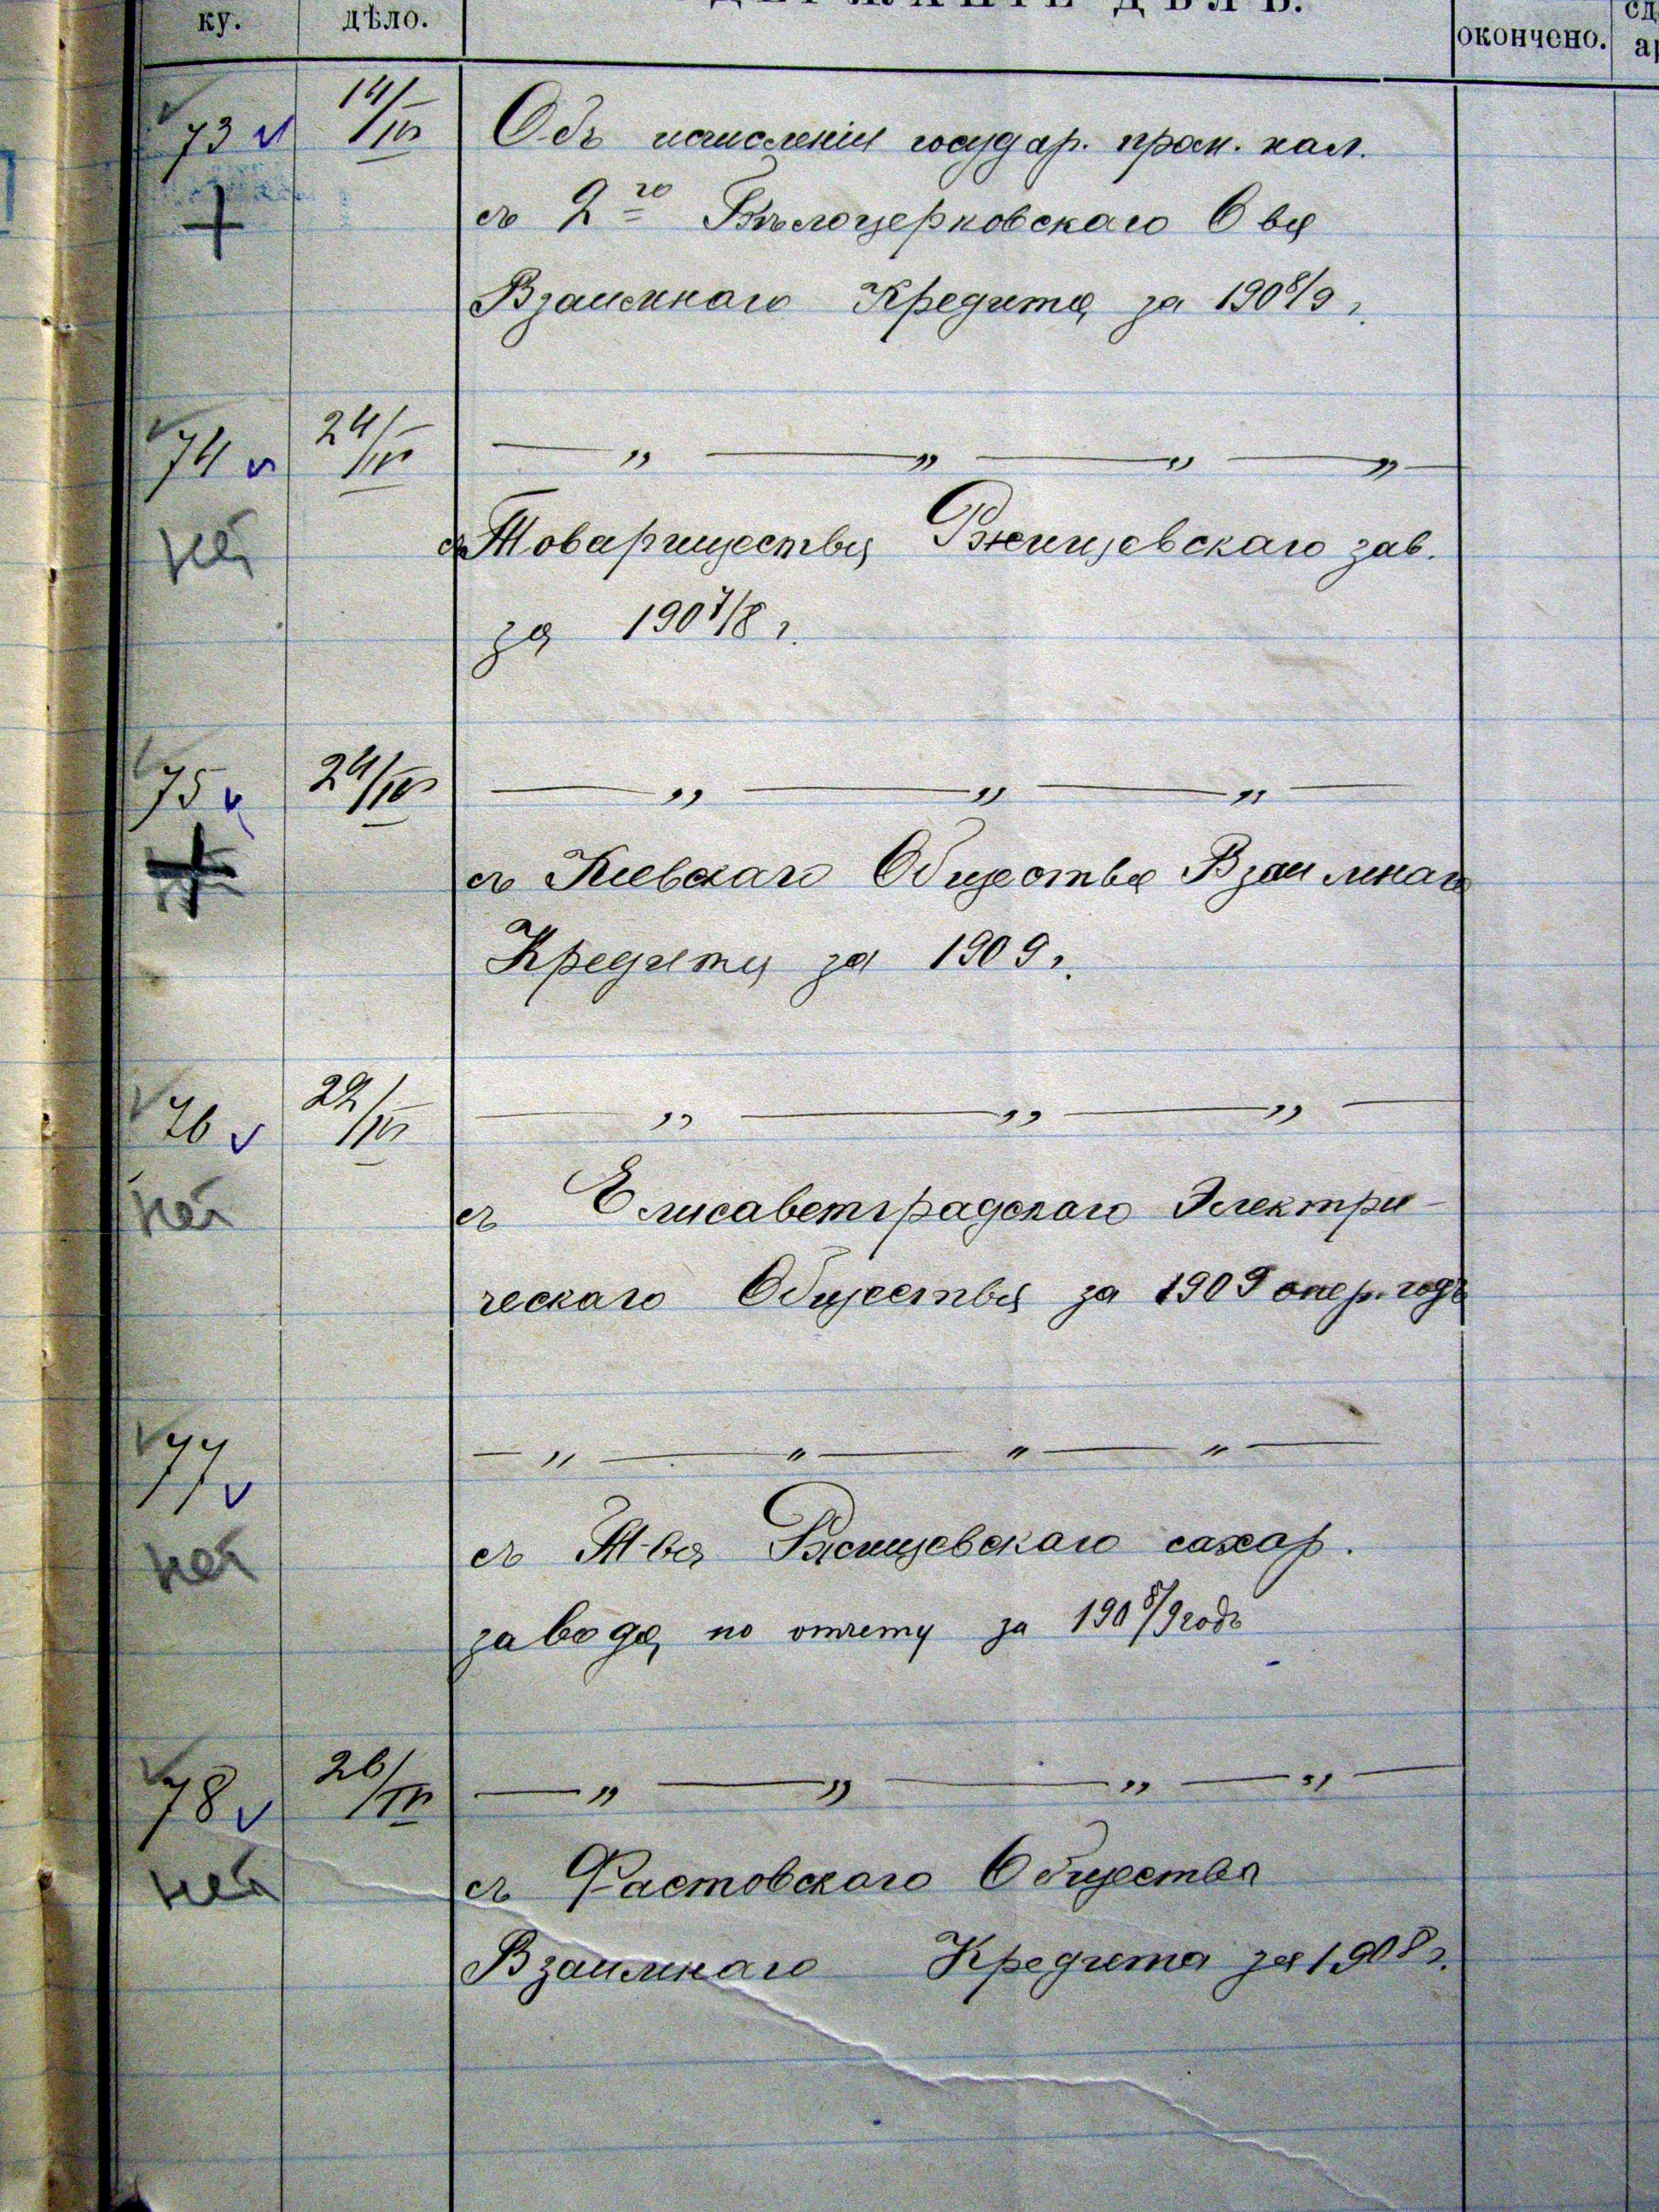 ку. дѣло. ДЕРЖАНІЕ ДѢЛЪ. окончено.
73 v 14/III Объ исчисленіи государ. пром. нал.
+ съ 2го Бѣлоцерковскаго О ва
Взаимнаго Кредита за 1908/9 г.
74 v 24/III — „ — „ — „ — „ —
нет съ Товарищества Ржищевскаго зав.
за 1907/8 г.
75 v 24/III — „ — „ — „ —
+ съ Кіевскаго Общества Взаимнаго
Кредита за 1909 г.
76 v 22/III — „ — „ — „ —
нет съ Елисаветградскаго Электри-
ческаго Общества за 1909 опер. годъ
77 v — „ — „ — „ — „ —
нет съ Т-ва Ржищевскаго сахар.
завода, по отчету за 1908/9 годъ
78 v 26/III — „ — „ — „ — „ —
нет съ Фастовскаго Общества
Взаимнаго Кредита за 1908 г.